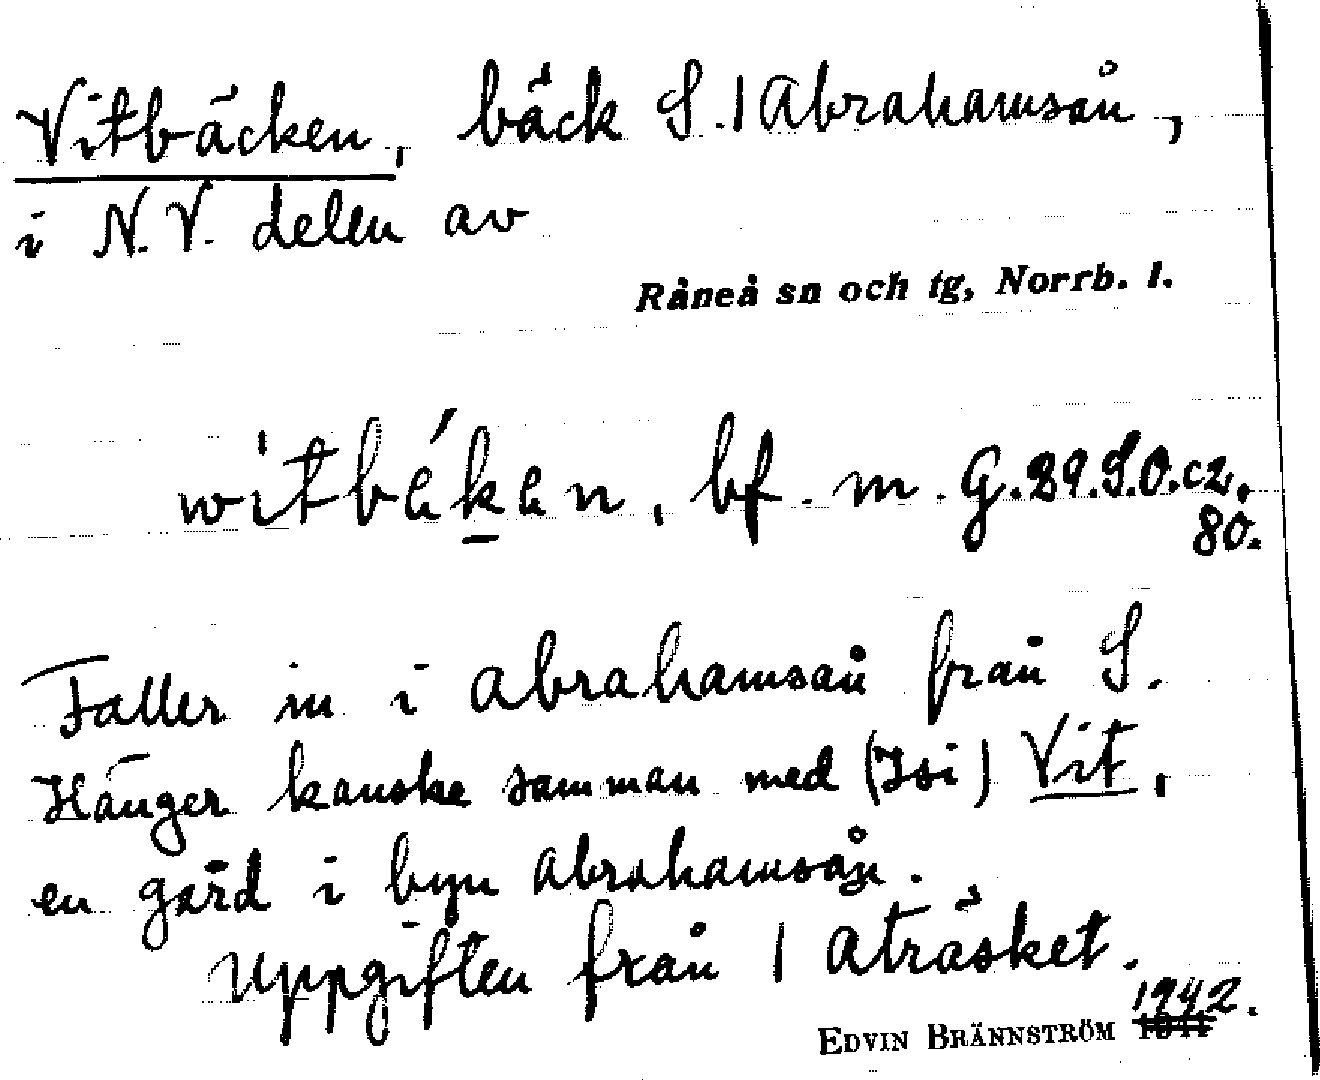 Vitbäcken, bäck S. / Abrahamsån,
i N.V. delen av
Råneå sn och tg, Norrb. l.
witbäken, bf. m. G.29.S.O.c2,
80.
Faller in i Abrahamsån från S.
Hänger kanske samman med (Isi) Vit,
en gård i byn Abrahamsån.
Uppgiften från / Aträsket.
EDVIN BRÄNNSTRÖM 1942.